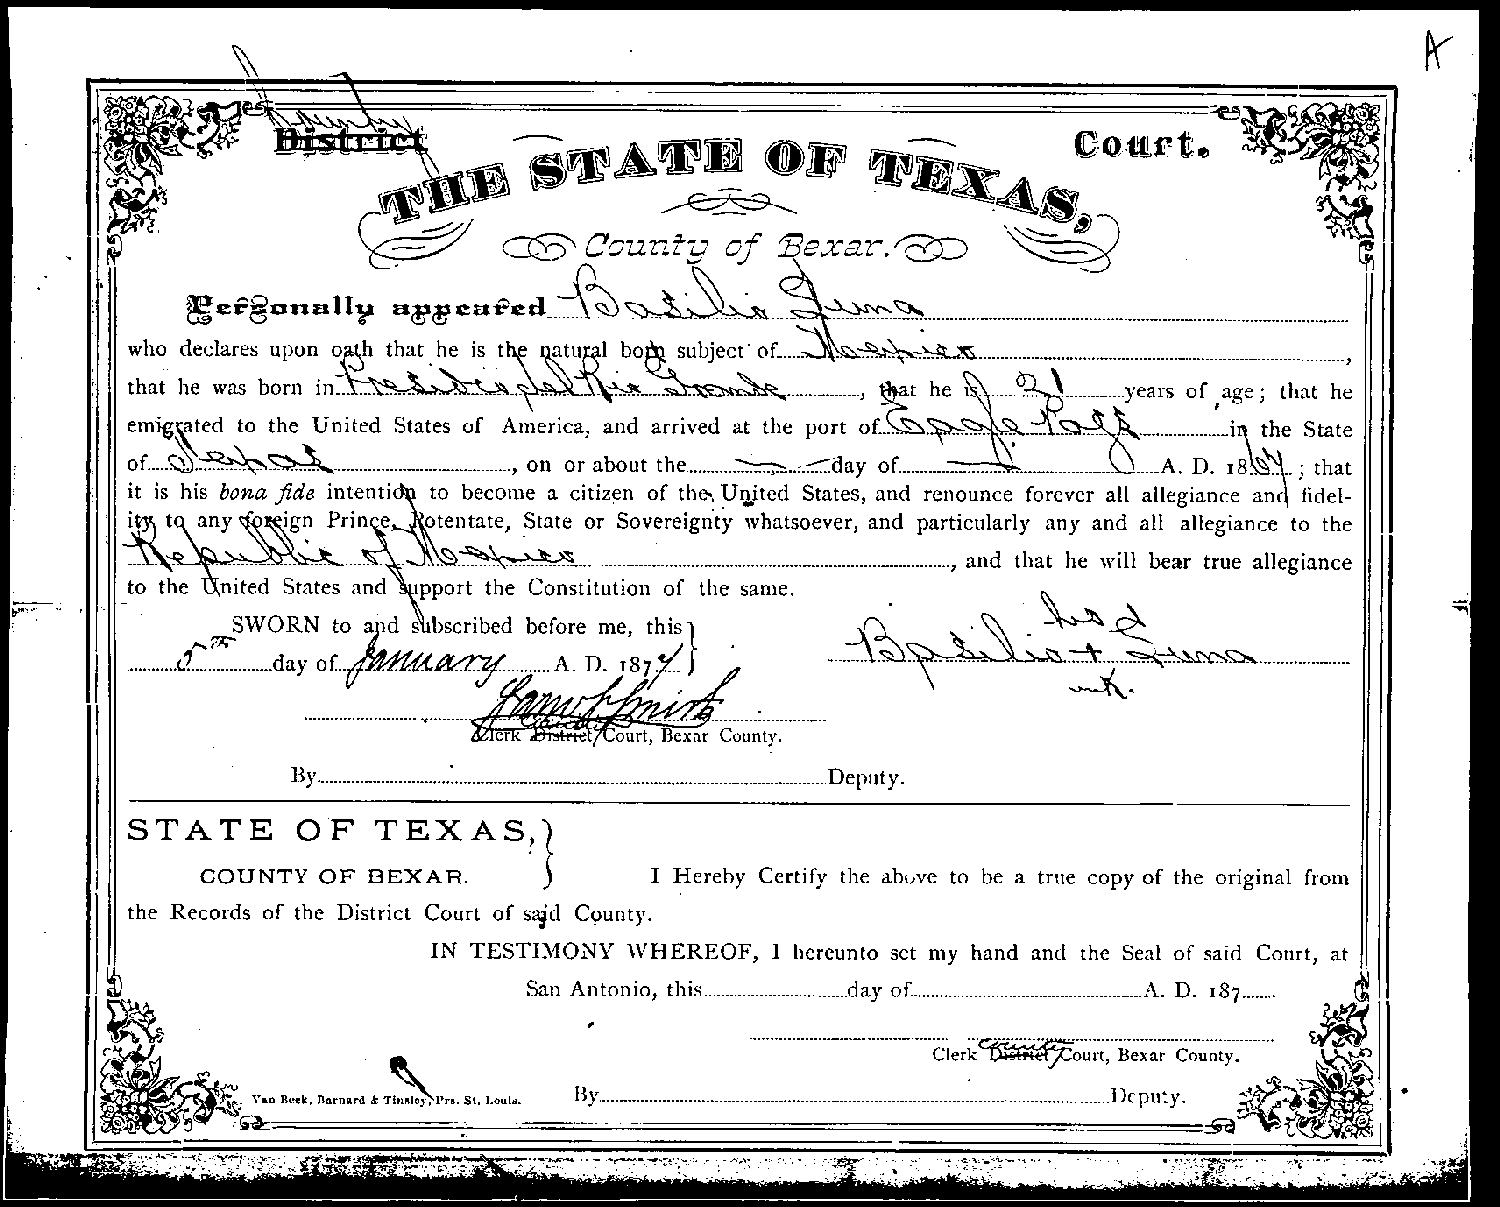 A
County
District Court.
THE STATE OF TEXAS,
County of Bexar.
Personally appeared Basilio Luna
who declares upon oath that he is the natural born subject of Mexico,
that he was born in Presidio del Rio Grande, that he is 21 years of age; that he
emigrated to the United States of America, and arrived at the port of Eagle Pass in the State
of Texas, on or about the — — day of — A. D. 18; that
it is his bona fide intention to become a citizen of the United States, and renounce forever all allegiance and fidel-
ity to any foreign Prince, Potentate, State or Sovereignty whatsoever, and particularly any and all allegiance to the
Republic of Mexico, and that he will bear true allegiance
to the United States and support the Constitution of the same.
SWORN to and subscribed before me, this
5th day of January A. D. 187
his
Basilio + Luna
mk.
Smith
Clerk District County Court, Bexar County.
By Deputy.
STATE OF TEXAS,
COUNTY OF BEXAR.
I Hereby Certify the above to be a true copy of the original from
the Records of the District Court of said County.
IN TESTIMONY WHEREOF, I hereunto set my hand and the Seal of said Court, at
San Antonio, this day of A. D. 187
Clerk District County Court, Bexar County.
By Deputy.
Van Beek, Barnard & Tinsley, Prs. St. Louis.